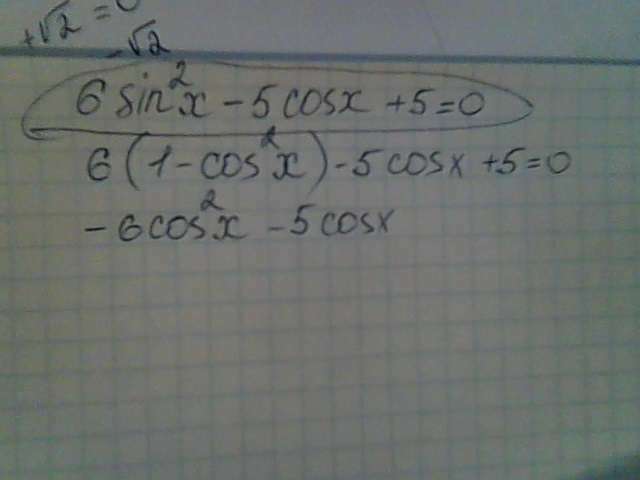 +√2 = 0
-√2
6 sin²x - 5 cosx + 5 = 0
6(1 - cos²x) - 5 cosx + 5 = 0
- 6 cos²x - 5 cosx